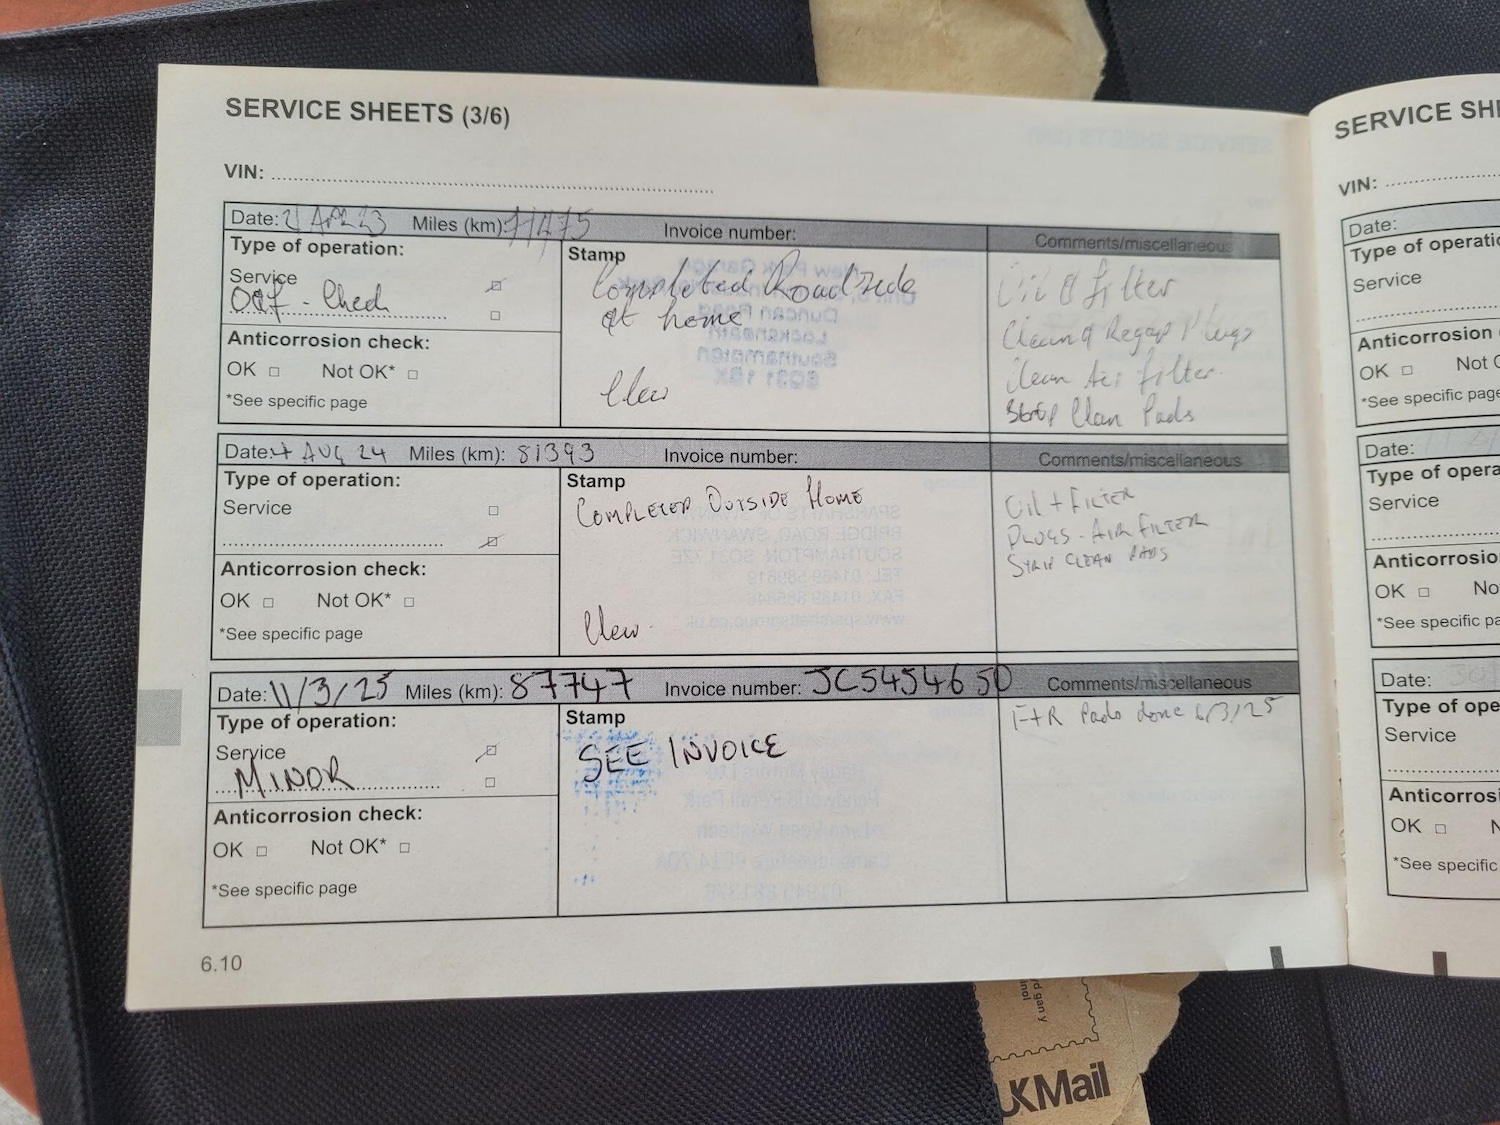 SERVICE SHEETS (3/6)
VIN:
Date: 21 APR 23 Miles (km): 77475 Invoice number: Comments/miscellaneous
Type of operation:
Service
O&F - Check
Anticorrosion check:
OK □ Not OK* □
*See specific page
Stamp
Completed Roadside
at home
Oil & filter
Clean & Regap Plugs
Clean Air filter.
Strip Clean Pads
Date: AUG 24 Miles (km): 81393 Invoice number: Comments/miscellaneous
Type of operation:
Service
Anticorrosion check:
OK □ Not OK* □
*See specific page
Stamp
COMPLETED OUTSIDE HOME
OIL + FILTER
PLUGS - AIR FILTER
STRIP CLEAN PADS
Date: 11/3/25 Miles (km): 87747 Invoice number: JC5454650 Comments/miscellaneous
Type of operation:
Service
MINOR
Anticorrosion check:
OK □ Not OK* □
*See specific page
Stamp
SEE INVOICE
F+R Pads done 6/3/25
6.10
SERVICE SH
VIN:
Date:
Type of operatio
Service
Anticorrosion
OK □ Not
*See specific page
Date:
Type of opera
Service
Anticorrosio
OK □ No
*See specific pa
Date:
Type of ope
Service
Anticorrosi
OK □ N
*See specific
d gan y
inol
UKMail